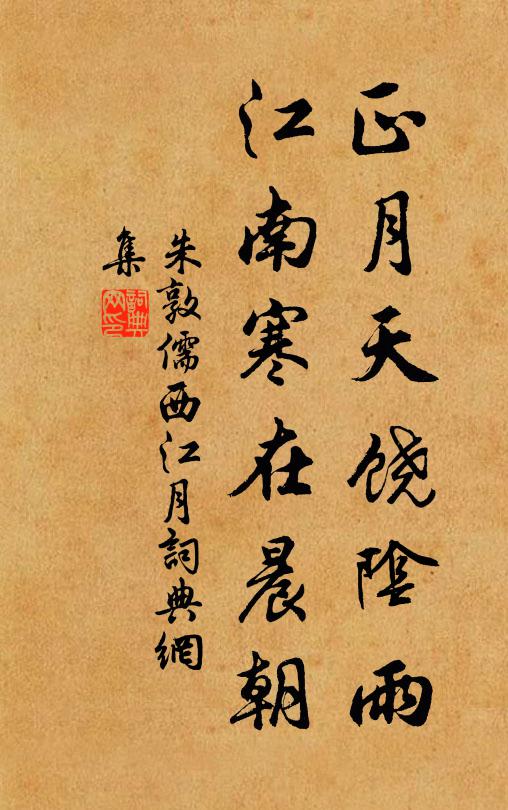 正月天饶陰雨
江南寒在晨朝
朱敦儒西江月詞典網
集
詞典网印